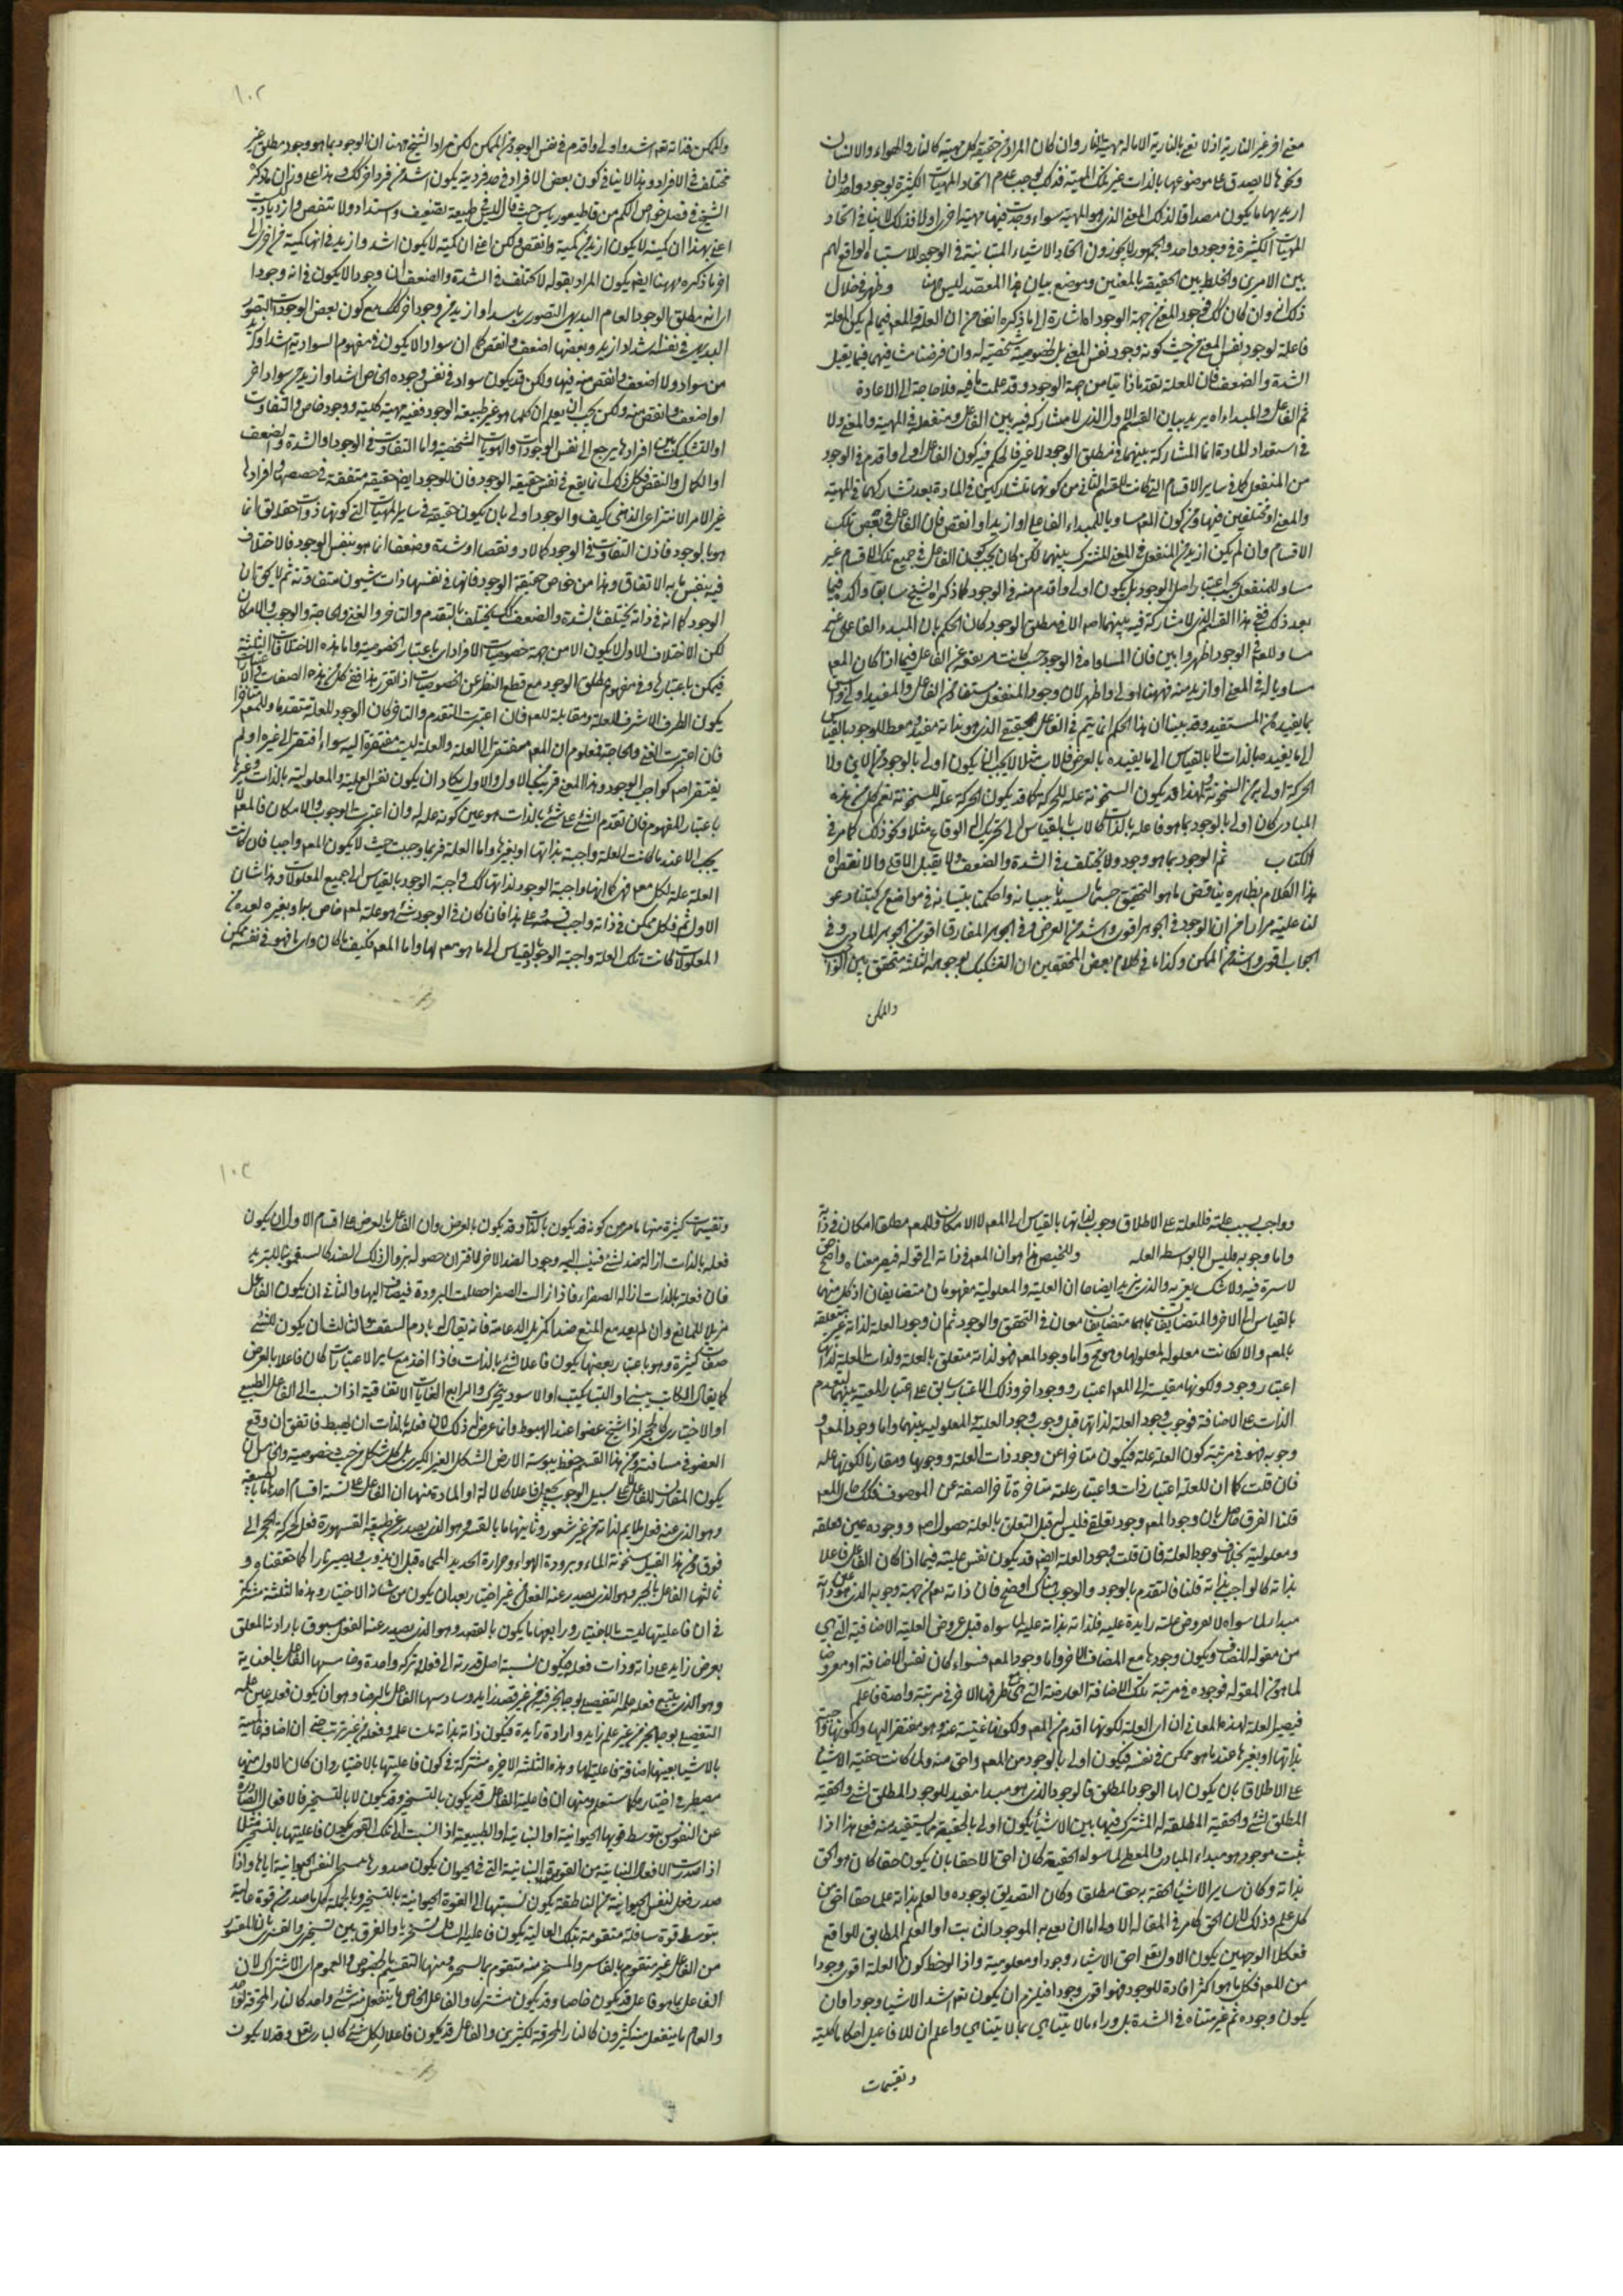 معنى اخر غير النارية اذ لا نعنى بالنارية الا ماله مهية النار وان كان المراد من حقيقة كل مهية كالنار والهواء والانسان
ونحوها لا يصدق على موضوعها بالذات غير تلك المهية فذلك يوجب عدم اتحاد المهيات الكثيرة بوجود واحد وان
اريد بها ما يكون مصداقا لذلك المعنى الذي هو المهية سواء وجدت فيها مهية اخرى اولا فذلك لا ينافى اتحاد
المهيات الكثيرة فى وجود واحد والجمهور لا يجوزون اتحاد الاشياء المتباينة فى الوجود للاشتباه الواقع لهم
بين الامرين والخلط بين الحقيقة بالمعنيين وموضع بيان هذا المقصد ليس ههنا وظهر فى خلال
ذلك انه وان كان كل فى وجود المعنى من جهة الوجود اه اشارة الى ما ذكره انفا من ان العلة والمعلم فيما لم يكن العلة
فاعلة لوجود نفس المعنى من حيث كونه وجود نفس المعنى بل لخصوصية شخصية له وان فرضنا مشافيهما فيما يقبل
الشدة والضعف فان للعلة تقدما ذاتيا من جهة الوجود وقد علمت ما فيه فلا حاجة الى الاعادة
ثم الفاعل والمبداء اه يريد بيان القسم الاول الذى لا مشاركة فيه بين الفاعل ومنفعله فى المهية والمعنى ولا
فى استعداد المادة انما المشاركة بينهما فى مطلق الوجود لا غير فالحكم فيه كون الفاعل اولى واقدم فى الوجود
من المنفعل كما فى ساير الاقسام التى كانت للقسم الثانى من كونهما متشاركين فى المادة بعد تشاركهما فى المهية
والمعنى او مختلفين فيها ومن كون المعلم مساويا للمبداء الفاعلى او ازيد او انقص فان الفاعل فى بعض تلك
الاقسام وان لم يكن ازيد من المنفعل فى المعنى المشترك بينهما لكن كان يجب كون الفاعل فى جميع تلك الاقسام غير
مساو للمنفعل بحسب اعتبار اصل الوجود بل يكون اولى واقدم منه فى الوجود كما ذكره الشيخ سابقا واكده فيما
بعد ذلك ففى هذا القسم الذى لا مشاركة فيه بينهما اصلا الا فى مطلق الوجود كان الحكم بان المبدء الفاعلى غير
مساو للمعلم فى الوجود اظهر وابين
مساويا له فى المعنى او ازيد منه فههنا اولى واظهر لان وجود المنفعل مستفاد من الفاعل والمفيد اولى
بما يفيد من المستفيد وقد بينا ان هذا الحكم انما يتم فى الفاعل الحقيقى الذى هو بذاته مفيد ومعط للوجود بالقياس
الى ما يفيده بالذات لا بالقياس الى ما يفيده بالعرض فالاب مثلا لا يجب ان يكون اولى بالوجود من الابن ولا
الحركة اولى من السخونة ولهذا قد يكون السخونة علة للحركة كما قد يكون الحركة علة للسخونة نعم كل من هذه
المبادى كان اولى بالوجود بما هو فاعله بالذات كالاب بالقياس الى تحريك الى الوقاع مثلا ونحو ذلك كما مر فى
الكتاب ثم الوجود بما هو وجود ولا يختلف فى الشدة والضعف ولا يقبل الاقل والانقص اه
هذا الكلام بظاهره يناقض ما هو التحقيق حسبما اسسنا بنيانه واحكمنا تبيانه فى مواضع من كتبنا وعو
لنا عليه مرارا من ان الوجود فى الجوهر اقوى واشد من العرض وفى الجوهر المفارق اقوى من الجوهر المادى وفى
الجواب اقوى واشد من الممكن وكذا ما فى كلام بعض المحققين ان التشكيك بوجوهه الثلثة متحقق بين الواجب
والممكن
١٠٢
والممكن فذاته تعه اشد واولى واقدم فى نفس الوجود من الممكن لكن مراد الشيخ ههنا ان الوجود بما هو وجود مطلق غير
مختلف فى الافراد وهذا لا ينافى كون بعض الافراد فى حد فرديته يكون اشد من فرد اخر كك وهذا على وزان ما ذكره
الشيخ فى فصل خواص الكم من قاطيغورياس حيث قال
اعنى بهذا ان كمية لا يكون ازيد من كمية وانقص ولكن اعنى ان كمية لا يكون اشد وازيد فى انها كمية من اخرى
اخر ما ذكره وههنا ايضا يكون المراد بقوله لا يختلف فى الشدة والضعف ان وجودا لا يكون فى انه وجود ا
اى انه مطلق الوجود العام البديهى التصور باشد او ازيد من وجود اخر كك مع كون بعض الوجودات المتصور
البديهى فى نفسه اشد او ازيد وبعضها اضعف وانقص كما ان سوادا لا يكون فى مفهوم السوادية اشد او ازيد
من سواد ولا اضعف وانقص منه فيها ولكن قد يكون سواد فى نفس وجوده الخاص اشد او ازيد من سواد اخر
او اضعف وانقص منه ولكن يجب ان يعلم ان كلما هو غير طبيعة الوجود ففيه مهية كلية ووجود خاص والتفاوت
او التشكيك بين افراده يرجع الى نفس الوجودات والهويات الشخصية واما التفاوت فى الوجود او الشدة والضعف
او الكمال والنقص فكل ذلك انما يقع فى نفس حقيقة الوجود فان للوجود ايضا حقيقة متفقة فى حصصه وافراده
غير الامر الانتزاعى الذهنى كيف والوجود اولى بان يكون حقيقة من ساير المهيات التى كونها ذوات حقايق انما
هو بالوجود فاذن التفاوت فى الوجود كمالا ونقصا وشدة وضعفا انما هو بنفس الوجود فما لاختلاف
فيه بنفس ما به الاتفاق وهذا من خواص حقيقة الوجود فانها فى نفسها ذات شئون متفاوتة ثم لا يخفى ان
الوجود كما انه فى ذاته يختلف بالشدة والضعف كك يختلف بالتقدم والتاخر والغنى والحاجة والوجوب والامكان
لكن الاختلاف الاول لا يكون الا من جهة خصوصيات الافراد اى باعتبار الخصوصية واما هذه الاختلافات الثلثة
فيمكن باعتبارها وفى مفهوم مطلق الوجود مع قطع النظر عن الخصوصيات اذ تقرر هذا ففى كل من هذه الصفات
يكون الطرف الاشرف للعلة ومقابلة للمعلم فان اعتبرت التقدم والتاخر كان الوجود للعلة متقدما وللمعلم متاخرا
فان اعتبرت الغنى والحاجة فمعلوم ان المعلم مفتقر الى العلة والعلة ليست مفتقرة اليه سواء افتقر الى غيره او لم
يفتقر اصلا كواجب الوجود وهذا المعنى قريب من الاول والاول يكاد ان يكون نفس العلية والمعلولية بالذات وغيرها
باعتبار المفهوم فان تقدم الشئ على شئ بالذات هو عين كونه علة له وان اعتبرت الوجوب والامكان فالمعلم لا
يجب الا عند ما كانت العلة واجبة بذاتها او بغيرها واما العلة فربما وجبت حيث لا يكون المعلم واجبا فان كانت
العلة علة لكل معلم فهى كما انها واجبة الوجود لذاتها كك واجبة الوجود بالقياس الى جميع المعلولات وهذا شان
الاول تعه فكل ممكن فى ذاته واجب فيه وعلى هذا فان كان فى الوجود شئ هو علة لمعلم خاص بها وبغيره لعدة من
المعلولات كانت تلك العلة واجبة الوجود بالقياس الى ما هو معلم لها واما المعلم فكيف ما كان واى ما فهو فى نفسه ممكن
وواجب بسبب علته فللعلة على الاطلاق وجوب لذاتها بالقياس الى المعلم لا الامكان وللمعلم مطلقا امكان فى ذاته
واما وجوبه فليس الا بواسطة العلة وتلخيص هذا هو ان المعلم فى ذاته الى قوله فيصر معناه واضح
لا سترة فيه ولا شك يعتريه والذى نزيد ايضاحا ان العلية والمعلولية مفهومان متضايفان اذ كل منهما
بالقياس الى الاخر والمتضايفان بما هما متضايفان معان فى التحقق والوجود ثم ان وجود العلة لذاته غير متعلقة
بالمعلم والا لكانت معلولة لمعلولها وهو مح واما وجود المعلم فهو لذاته متعلق بالعلة ولذات العلة لذاتها
اعتبار وجود ولكونها مقيسة الى المعلم اعتبار ووجود اخر وذلك الاعتبار سابق على اعتبار المعية بينهما لتقدم
الذات على الاضافة فوجوب وجود العلة لذاتها قبل وجوب وجود العلية والمعلولية بينهما واما وجود المعلم و
وجوبه فهو فى مرتبة كون العلة علة فيكون متاخرا عن وجود ذات العلة ووجوبها ومقارنا لكونها علة
فان قلت كما ان للعلة اعتبار ذات واعتبار علية متاخرة تاخر الصفة عن الموصوف فكك حال المعلم
قلنا الفرق حاصل بان وجود المعلم وجود تعلقى فليس له قبل التعلق بالعلة حصول اصلا ووجوده عين تعلقه
ومعلوليته بخلاف وجود العلة فان قلت وجود العلة ايضا قد يكون نفس عليته فيما اذا كان الفاعل فاعلا
بذاته كالواجب بذاته قلنا فالتقدم بالوجود والوجوب هناك اوضح فان ذاته تعه من جهة وجوبه الذى هو عين ذاته
مبدا لما سواه لا بعروض علية زايدة عليه فلذاته بذاته علية لما سواه قبل عروض العلية الاضافية التى هى
من مقولة المضاف ويكون وجودها مع المضاف الاخر واما وجود المعلم فسواء كان نفس الاضافة او معروضا
لما هو من المقولة فوجوده فى مرتبة تلك الاضافة العارضة التى هى مع طرفها الاخر فى مرتبة واحدة فاعلم
فيصير العلة لهذه المعانى ان اى العلة لكونها اقدم من المعلم ولكونها غنية عنه وهو مفتقر اليها ولكونها واجبة
بذاتها او بغيرها عند ما هو ممكن فى نفسه فيكون اولى بالوجود من المعلم واحق منه ولما كانت حقية الاشياء
على الاطلاق بان يكون لها الوجود المطلق فالوجود الذى هو مبدا مفيد للوجود المطلق لشئ والحقية
المطلق لشئ والحقية المطلقة له المشترك فيها بين الاشياء يكون اولى بالحقيقة مما يستفيد منه فعلى هذا اذا
ثبت موجود هو مبداء المبادى والمعطى لما سواه الحقيقة كان احق الاحقاء بان يكون حقا كان هو الحق
بذاته وكان ساير الاشياء الحقة به حقا مطلقا وكان التصديق بوجوده والعلم بذاته علما حقا احق من
كل علم وذلك لان الحق كما مر فى المقالة الاولى اما ان يعنى به الموجود الثابت او العلم المطابق للواقع
فعلى كلا الوجهين يكون الاول تعه احق الاشياء وجودا ومعلومية واذا لوحظ كون العلة اقوى وجودا
من المعلم فكل ما هو اكثر افادة للوجود فهو اقوى وجودا فيلزم ان يكون تعه اشد الاشياء وجودا وان
يكون وجوده ثم غير متناه فى الشدة بل وراء ما لا يتناهى بما لا يتناهى واعلم ان للافاعيل احكاما كلية
وتقسيمات
١٠٣
وتقسيمات كثيرة منها ما مر من كونه قد يكون بالذات وقد يكون بالعرض وان الفاعل بالعرض على اقسام الاول ان يكون
فعله بالذات ازالة ضد لشئ فينسب اليه وجود الضد الاخر لاقتران حصوله بزوال ذلك الضد كالسقمونيا للتبريد
فان فعله بالذات ازالة الصفراء فاذا زالت الصفراء حصلت البرودة فيضاف اليها والثانى ان يكون الفاعل
مزيلا للمانع وان لم يفد مع المنع ضدا كمزيل الدعامة فانه يقال له هادم السقف والثالث ان يكون للشئ
صفات كثيرة وهو باعتبار بعضها يكون فاعلا لشئ بالذات فاذا اخذ مع ساير الاعتبارات كان فاعلا بالعرض
كما يقال الكاتب يبنى او البناء يكتب او الاسود يتحرك والرابع الغايات الاتفاقية اذا نسبت الى الفاعل الطبيعى
او الاختيارى كالحجر اذا شج عضوا عند الهبوط وانما عرض له ذلك لان فعله بالذات ان يهبط فاتفق ان وقع
العضو فى مسافته ومن هذا القسم حفظ يبوسة الارض الشكل الغير الكرى
يكون المقارن للفاعل لا على سبيل الوجوب يجعل فاعلا كالالة او المادة ومنها ان الفاعل على ستة اقسام احدها ما بالطبيعة
وهو الذى عنه فعل ملايم لذاته من غير شعور وثانيها ما بالقسر وهو الذى يصدر عن طبيعته المقسورة فعل كحركة الحجر الى
فوق ومن هذا القبيل سخونة الماء وبرودة الهواء وحرارة الحديد المحماه قبل ان يذوب ويصير نارا كما حققناه و
ثالثها الفاعل بالجبر وهو الذى يصدر عنه الفعل من غير اختيار بعد ان يكون من شانه الاختيار وهذه الثلثة مشتركة
فى ان فاعليتها ليست بالاختيار ورابعها ما يكون بالقصد وهو الذى يصدر عنه الفعل مسبوق بارادة المتعلق
بغرض زايد على ذاته وذات فعله فيكون نسبة اصل قدرته الى فعله وتركه واحدة وخامسها الفاعل بالعناية
وهو الذى يتبع فعله علمه التفصيلى بوجه الخير فيه من غير قصد زايد وسادسها الفاعل بالرضا وهو ان يكون فعله عين علمه
التفصيلى بوجه الخير من غير علم زايد وارادة زايدة فيكون ذاته بذاته
بالاشياء بعينها اضافة فاعلية لها وهذه الثلثة الاخيرة مشتركة فى كون فاعليتها بالاختيار وان كان الاول منها
مضطرا فى اختياره كما ستعلم ومنها ان فاعلية الفاعل قد يكون بالتسخير وقد يكون لا بالتسخير فالافعال الصادرة
عن النفوس بتوسط قويها الحيوانية او النباتية او الطبيعية اذا نسبت الى تلك القوى يكون فاعليتها بالتسخير مثلا
اذا صدرت الافعال النباتية من القوة النباتية التى فى الحيوان يكون صدورها بتسخير النفس الحيوانية اياها واذا
صدر فعل لنفس الحيوانية من الناطقة يكون نسبتها الى القوة الحيوانية بالتسخير وبالجملة كل ما صدر من قوة عالية
بتوسط قوة سافلة متقومة بتلك العالية يكون فاعلية السافل تسخيريا والفرق بين التسخير والقسر بان المقسور
من الفاعل غير متقوم بالقاسر والمسخر منه متقوم بالمسخر ومنها التقسيم بالخصوص والعموم اى الاشتراك لان
الفاعل بما هو فاعل قد يكون خاصا وقد يكون مشتركا والفاعل الخاص ما ينفعل منه شئ واحد كالنار المحرقة لواحد
والعام ما ينفعل منه كثيرون كالنار المحرقة لكثيرين والفاعل قد يكون فاعلا لكل شئ كالبارى تعه وقد لا يكون